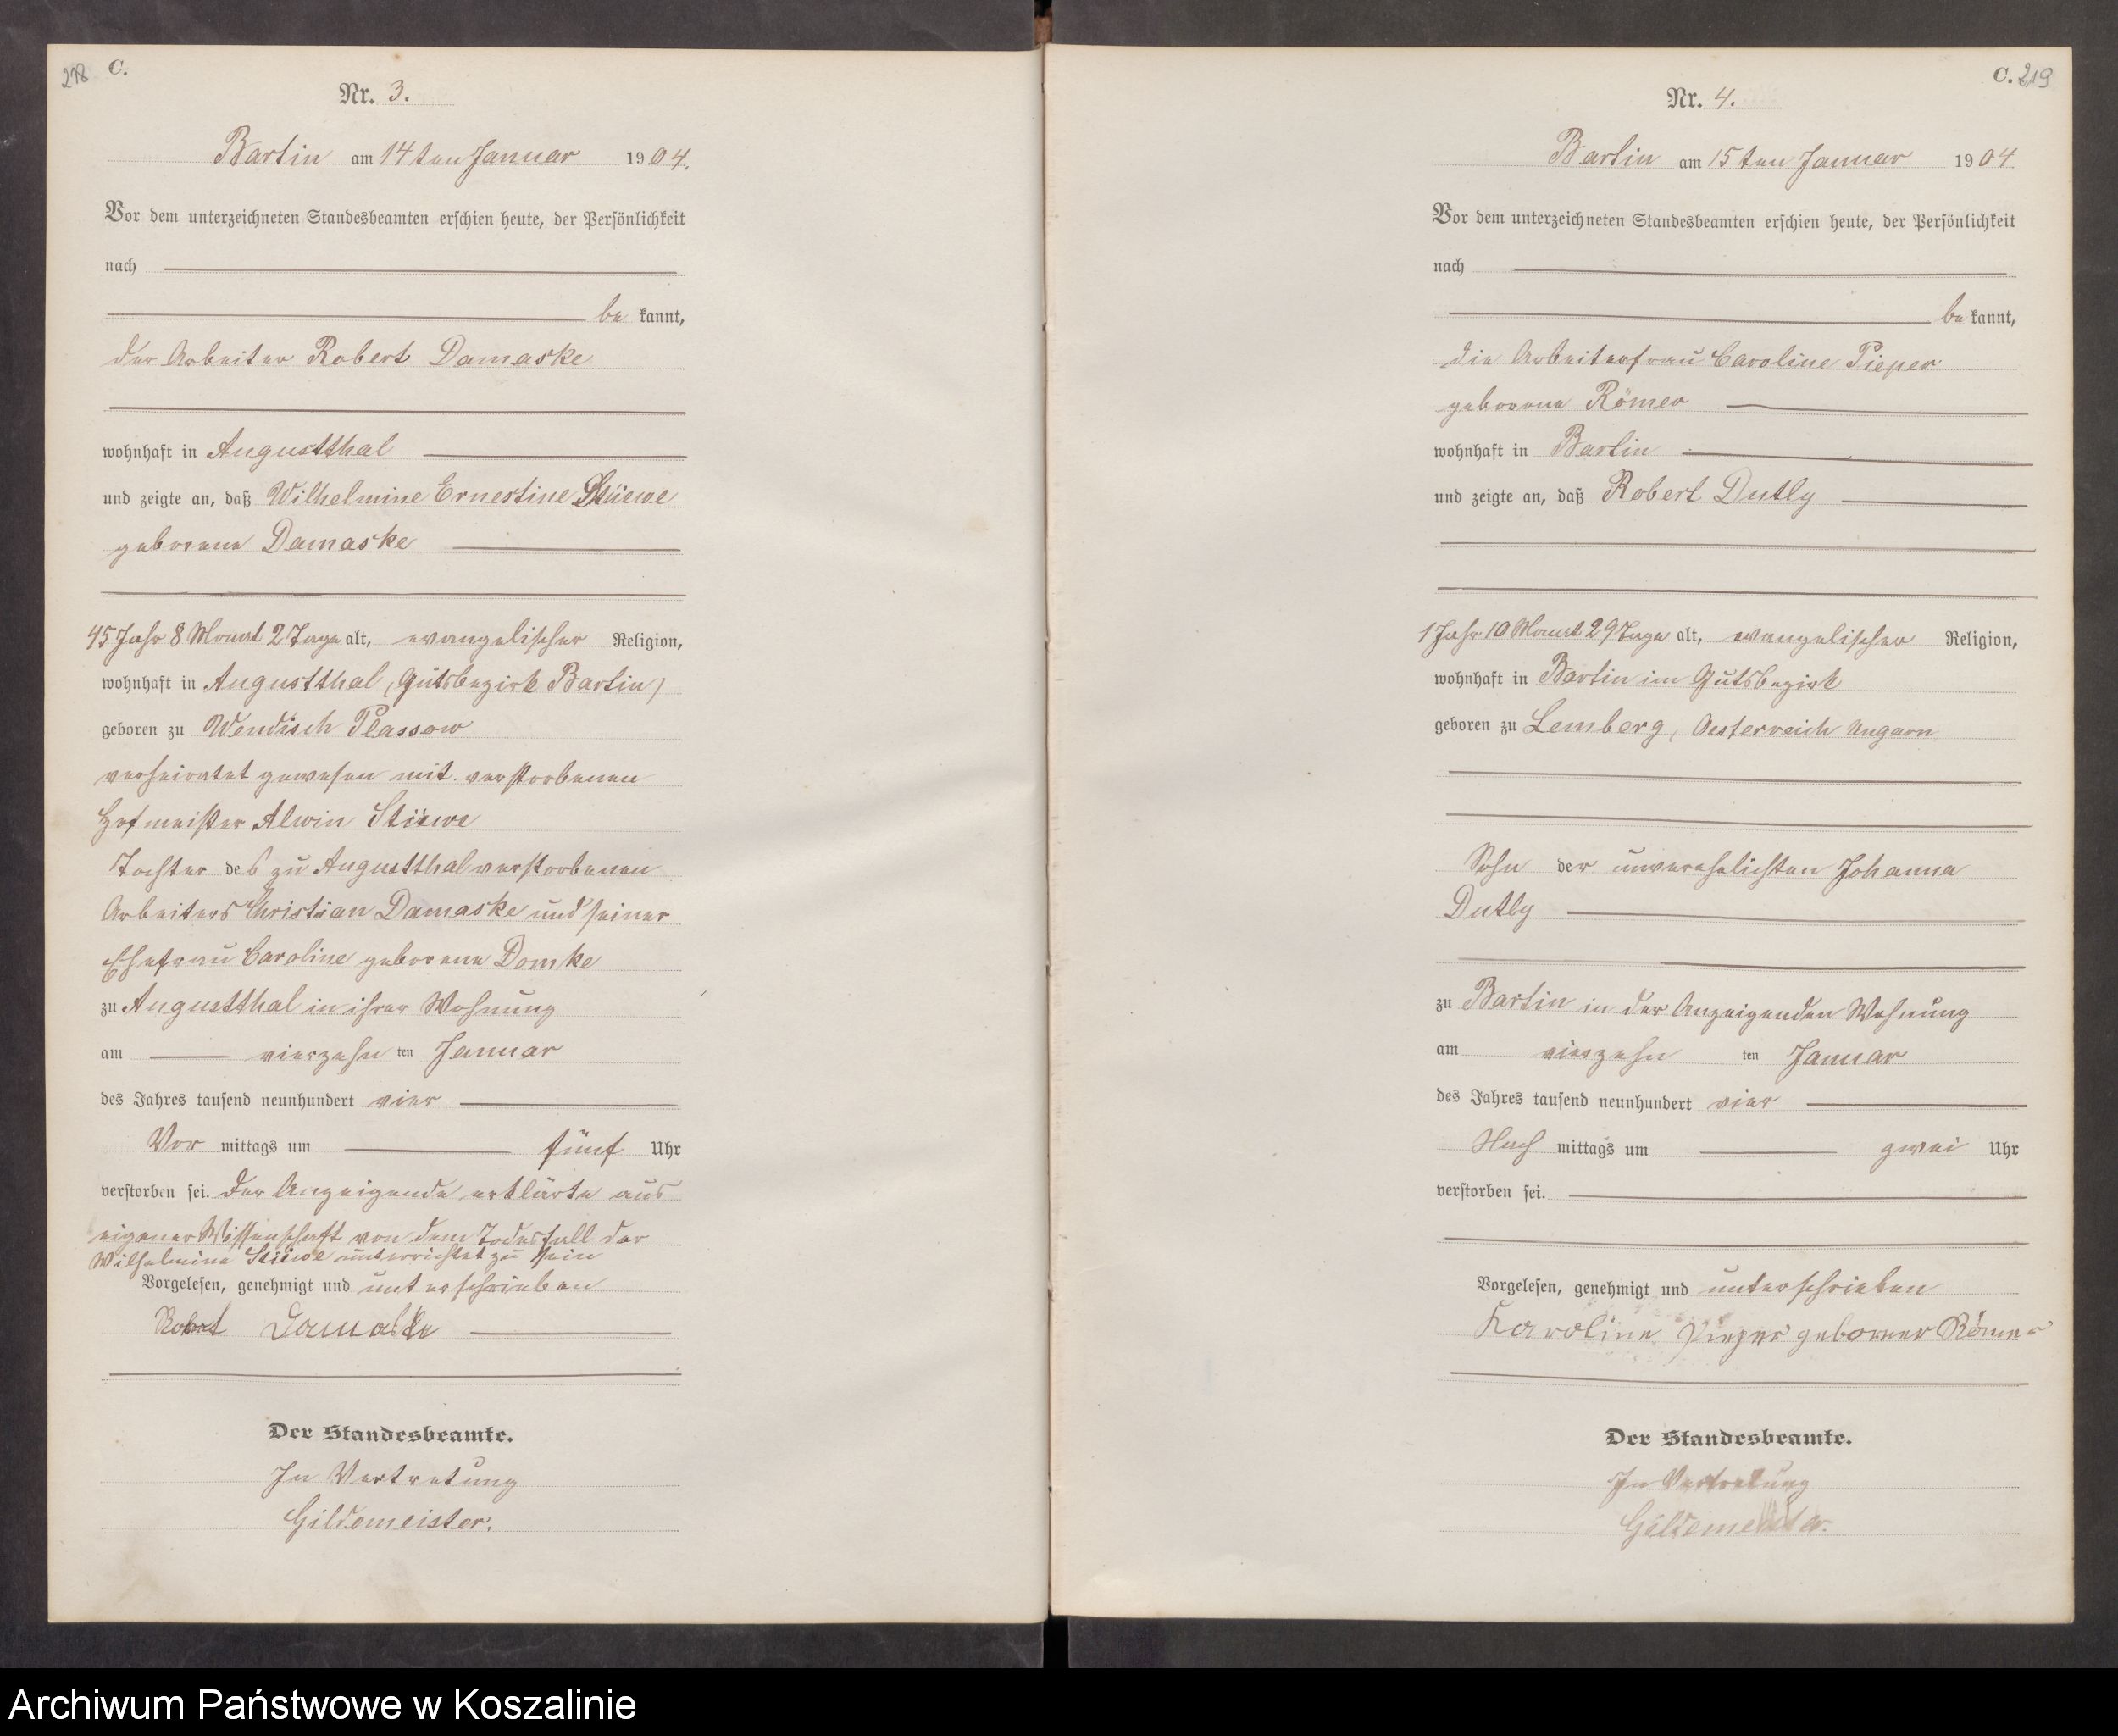 218 C.
Nr. 3.
Bartin am 14ten Januar 1904.
Vor dem unterzeichneten Standesbeamten erschien heute, der Persönlichkeit
nach
be kannt,
der Arbeiter Robert Damaske
wohnhaft in Augustthal
und zeigte an, daß Wilhelmine Ernestine Stüewe
geborene Damaske
45 Jahr 8 Monat 2 Tage alt, evangelischer Religion,
wohnhaft in Augustthal, (Gutsbezirk Bartin)
geboren zu Wendisch Plassow
verheiratet gewesen mit verstorbenen
Hofmeister Alwin Stüewe
Tochter des zu Augustthal verstorbenen
Arbeiters Christian Damaske und seiner
Ehefrau Caroline geborene Domke
zu Augustthal in ihrer Wohnung
am vierzehn ten Januar
des Jahres tausend neunhundert vier
Vor mittags um fünf Uhr
verstorben sei. Der Anzeigende erklärte aus
eigener Wissenschaft von dem Todesfall der
Wilhelmine Stüewe unterrichtet zu sein
Vorgelesen, genehmigt und unterschrieben
Robert Damaske
Der Standesbeamte.
In Vertretung
Gildemeister.
C. 219
Nr. 4.
Bartin am 15ten Januar 1904
Vor dem unterzeichneten Standesbeamten erschien heute, der Persönlichkeit
nach
be kannt,
die Arbeiterfrau Caroline Pieper
geborene Römer
wohnhaft in Bartin
und zeigte an, daß Robert Dutly
1 Jahr 10 Monat 29 Tage alt, evangelischer Religion,
wohnhaft in Bartin im Gutsbezirk
geboren zu Lemberg, Oesterreich Ungarn
Sohn der unverehelichten Johanna
Dutly
zu Bartin in der Anzeigenden Wohnung
am vierzehn ten Januar
des Jahres tausend neunhundert vier
Nach mittags um zwei Uhr
verstorben sei.
Vorgelesen, genehmigt und unterschrieben
Karoline Pieper geborner Römer
Der Standesbeamte.
In Vertretung
Gildemeister.
Archiwum Państwowe w Koszalinie